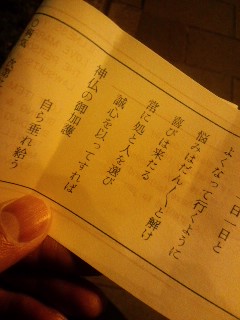 一日一日と
よくなって行くように
悩みはだん〱と解け
喜びは来たる
常に処と人を選び
誠心を以ってすれば
神仏の御加護
自ら垂れ給う